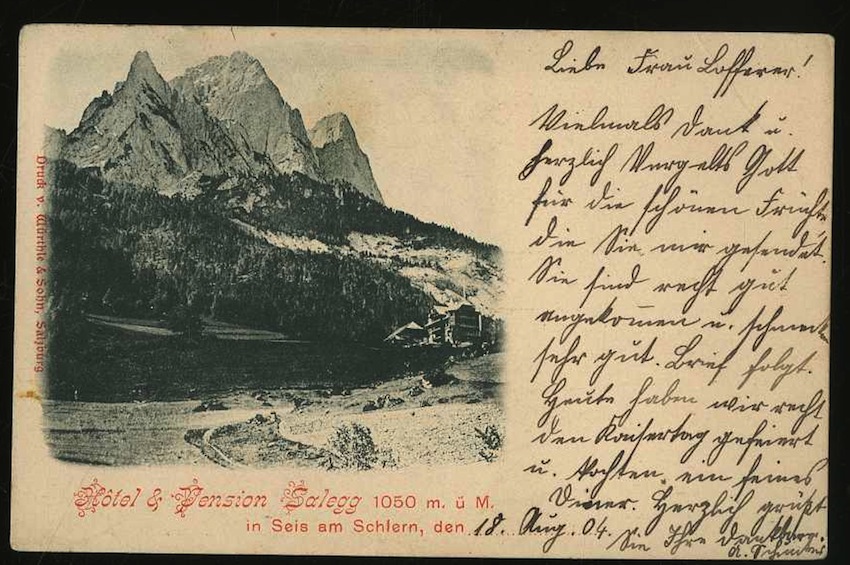 Liebe Frau Lofferer!
Vielmals Dank u.
herzlich Vergelts Gott
für die schönen Früchte
die Sie mir gesendet.
Sie sind recht gut
angekommen u. schmecken
sehr gut. Brief folgt.
Heute haben wir recht
den Kaisertag gefeiert
u. kochten ein feines
Diner. Herzlich grüßt
Sie Ihre dankbare
Druck v. & Sohn, Salzburg
Hôtel & Pension Salegg 1050 m. ü M.
in Seis am Schlern, den 18. Aug. 04.